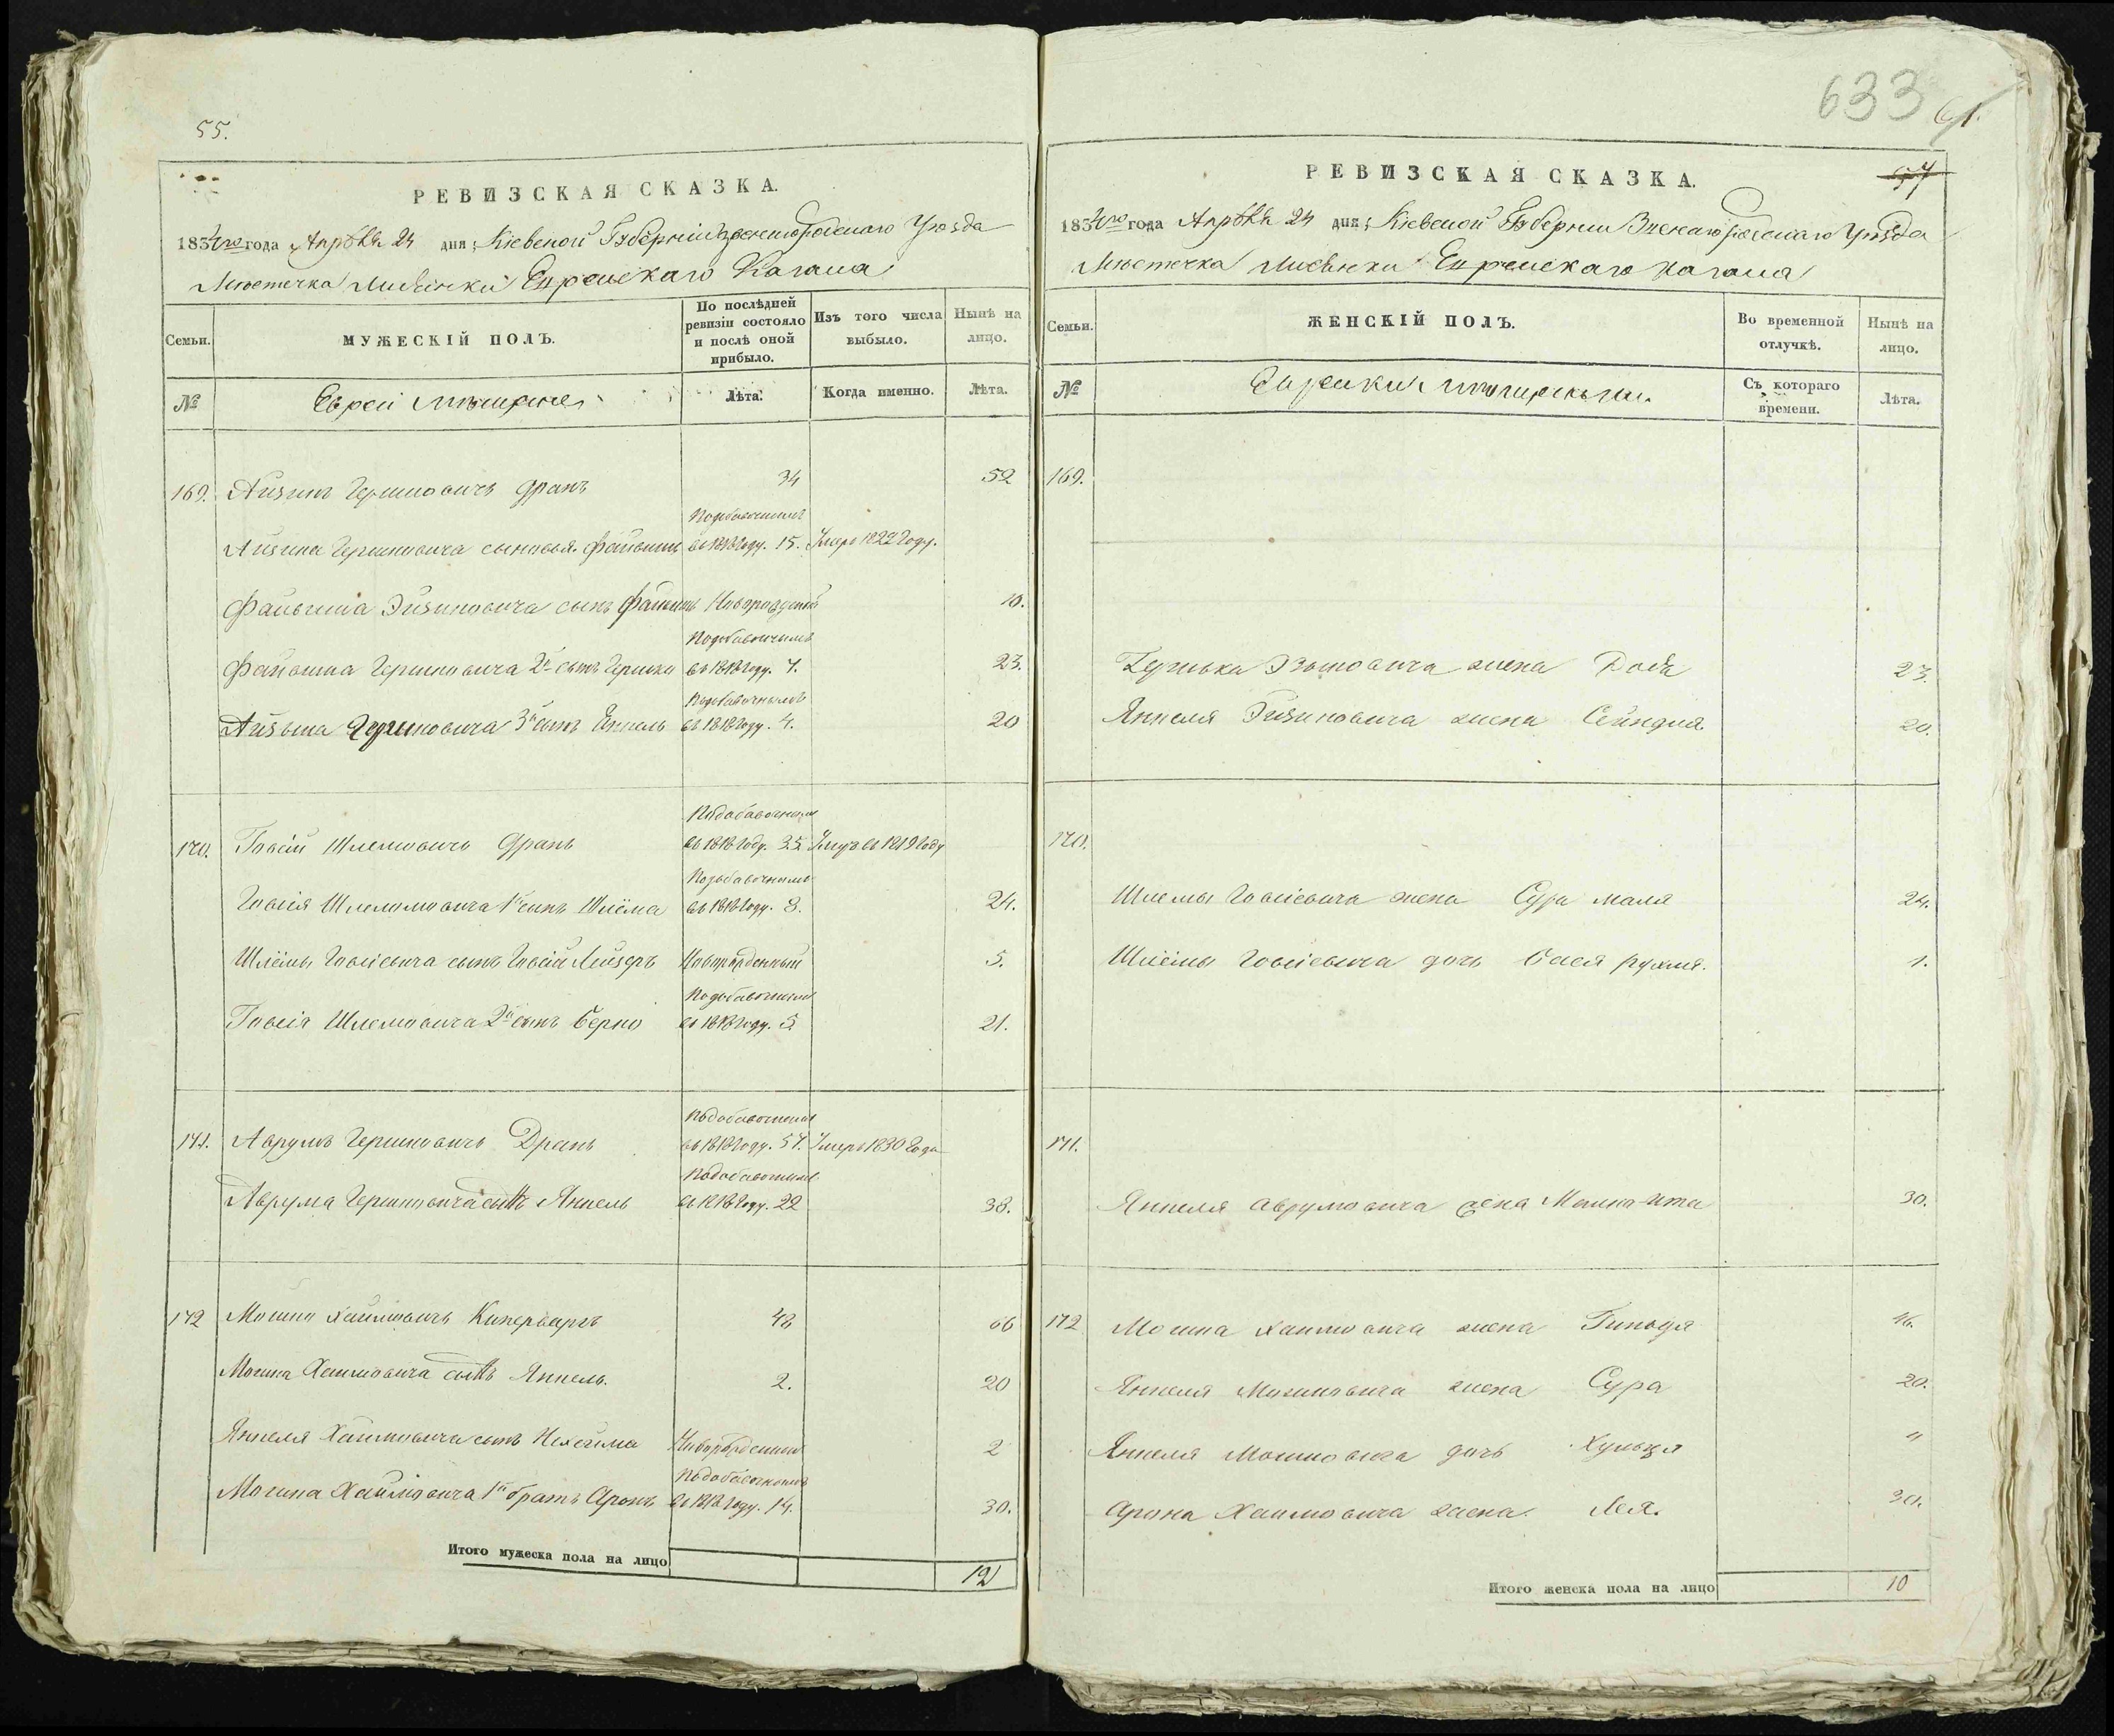 55.
РЕВИЗСКАЯ СКАЗКА.
1834го года Апрѣля 24 дня; Кіевской Губерніи Звенигородскаго Уѣзда
Мѣстечка Лисянки Еврейскаго Кагала
Семьи.
МУЖЕСКІЙ ПОЛЪ.
По послѣдней ревизіи состояло и послѣ оной прибыло.
Изъ того числа выбыло.
Нынѣ на лицо.
№
Евреи мѣщане
Лѣта.
Когда именно.
Лѣта.
169. Айзикъ Гершковичъ Дранъ 34 52
Айзика Гершковича сыновья. Файвишъ въ 1818 году. 15. Умеръ 1822 году.
Файвиша Эйзиковича сынъ Новорожденный 10.
Файвиша Гершковича 2й сынъ Гершко въ 1818 году. 7. 23.
Гершковича 3й сынъ Янкель въ 1818 году. 4. 20
170. Іовсій Шлемовичъ Дранъ въ 1818 году. 35. Умеръ въ 1819 году
Іовсія Шлемовича 1й сынъ Шлёма въ 1818 году. 8. 24.
Шлёмы Іовсіевича сынъ Іовсій Лейзеръ Новорожденный 5.
Іовсія Шлемовича 2й сынъ Берко въ 1818 году. 5 21.
171. Аврумъ Гершковичъ Дранъ въ 1818 году. 57. Умеръ 1830 года
Аврума Гершковича сынъ Янкель въ 1818 году. 22 38.
172 Мошко Хаимовичъ 48 66
Мошка Хаимовича сынъ Янкель. 2. 20
Янкеля Хаимовича сынъ Нехеима Новорожденный 2
Мошка Хаимовича 1й братъ Аронъ въ 1818 году. 14. 30.
Итого мужеска пола на лицо 12
633
61.
57
РЕВИЗСКАЯ СКАЗКА.
1834го года Апрѣля 24 дня; Кіевской Губерніи Звенигородскаго Уѣзда
Мѣстечка Лисянки Еврейскаго Кагала
Семьи.
ЖЕНСКІЙ ПОЛЪ.
Во временной отлучкѣ.
Нынѣ на лицо.
№
Еврейки мѣщанки.
Съ котораго времени.
Лѣта.
169.
Гершка жена 23.
Янкеля Эйзиковича жена Сейндля 20.
170.
Шлемы Іовсіевича жена Сура Маля 24.
Шлёмы Іовсіевича дочь Бася Рухля. 1.
171.
Янкеля Аврумовича жена 30.
172 Мошка Хаимовича жена 46.
Янкеля Мошковича жена Сура 20.
Янкеля Мошковича дочь "
Арона Хаимовича жена Лея. 30.
Итого женска пола на лицо 10